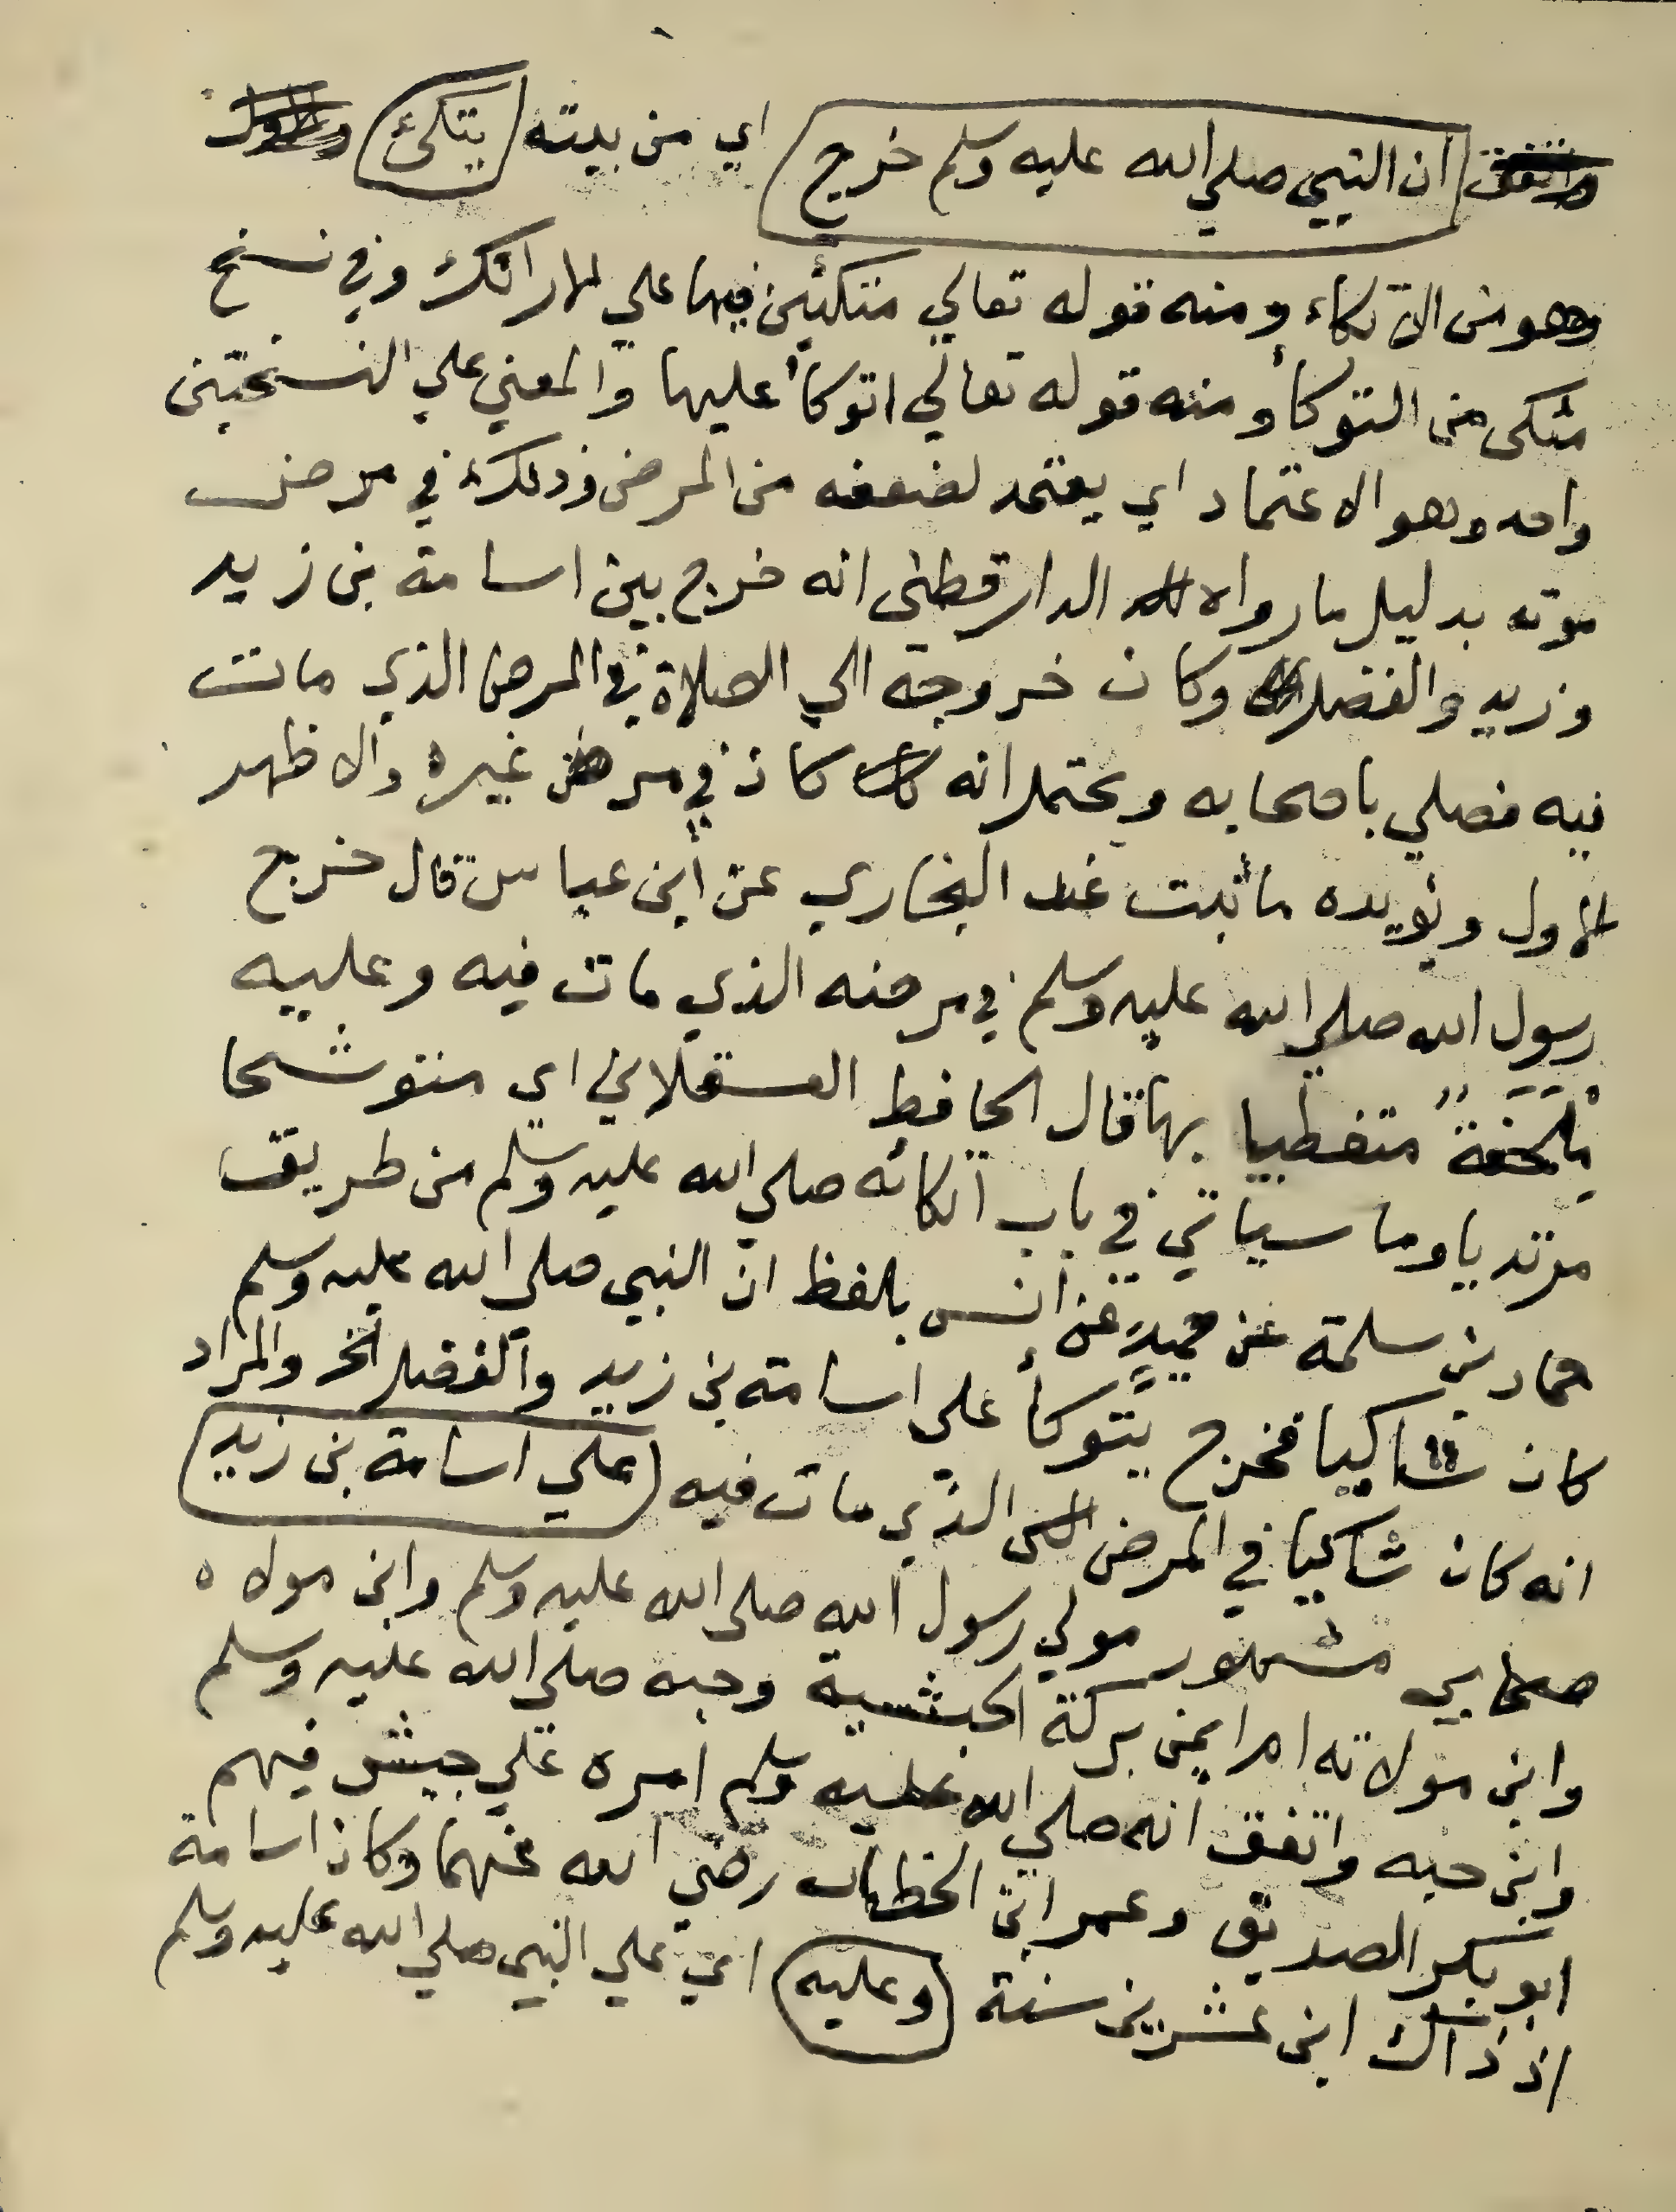 ان النبي صلي الله عليه وسلم خرج اي من بيته يتكئ
وهو من الاتكاء ومنه قوله تعالي متكئين فيها علي الارائك وفي نسخ
متكى من التوكأ ومنه قوله تعالي اتوكأ عليها والمعني علي النسختين
واحد وهو الاعتماد اي يعتمد لضعفه من المرض وذلك في مرض
موته بدليل ما رواه الدارقطني انه خرج بين اسامة بن زيد
وزيد والفضل وكان خروجه الي الصلاة في المرض الذي مات
فيه فصلي باصحابه ويحتمل انه كان في مرض غيره والاظهر
الاول ويؤيده ما ثبت عند البخاري عن ابن عباس قال خرج
رسول الله صلي الله عليه وسلم في مرضه الذي مات فيه وعليه
مِلحَفةً متغطيا بها قال الحافظ العسقلاني اي متوشحا
مرتديا وما سيأتي في باب اتكائه صلي الله عليه وسلم من طريق
حماد بن سلمة عن حميدٍ عن انس بلفظ ان النبي صلي الله عليه وسلم
كان شاكيا فخرج يتوكأ علي اسامة بن زيد والفضل الخ والمراد
انه كان شاكيا في المرض الذي مات فيه علي اسامة بن زيد
صحابي مشهور مولي رسول الله صلي الله عليه وسلم وابن مولاه
وابن مولاته ام ايمن بركة الحبشية وحبه صلي الله عليه وسلم
وابن حبه واتفق انه صلي الله عليه وسلم امره علي جيش فيهم
ابو بكر الصديق وعمر ابن الخطاب رضي الله عنهما وكان اسامة
اذ ذاك ابن عشرين سنة وعليه اي علي النبي صلي الله عليه وسلم